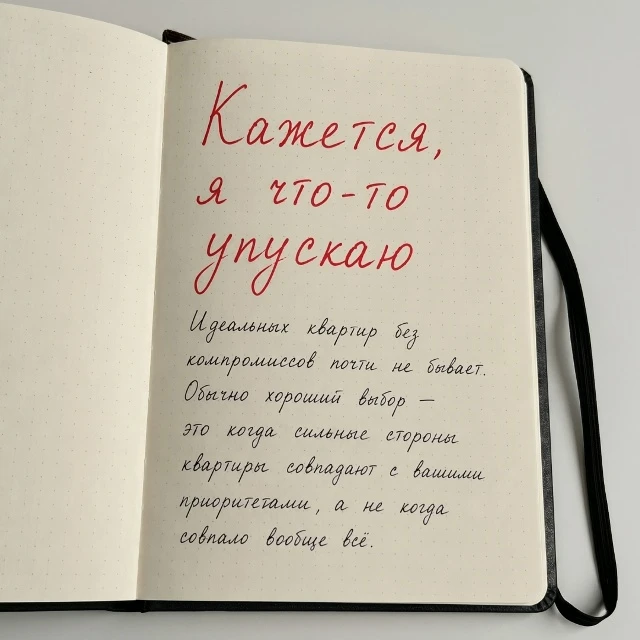 Кажется,
я что-то
упускаю
Идеальных квартир без
компромиссов почти не бывает.
Обычно хороший выбор —
это когда сильные стороны
квартиры совпадают с вашими
приоритетами, а не когда
совпало вообще всё.